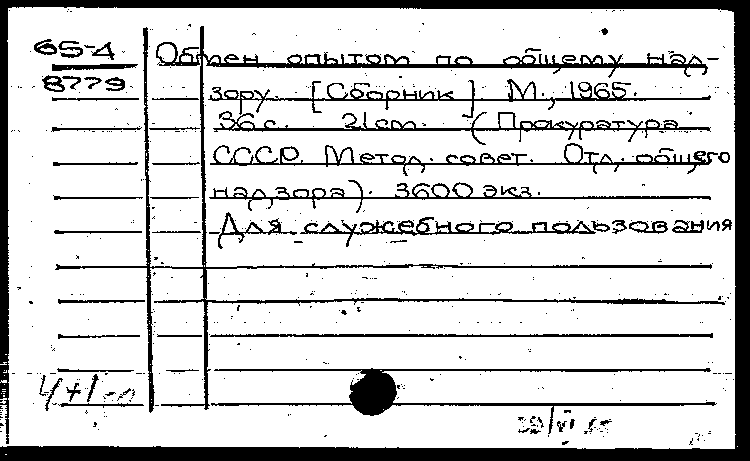 65-4
8779
Обмен опытом по общему над-
зору. [Сборник] М., 1965.
36 с. 21 cm. (Прокуратура
СССР. Метод. совет. Отд. общего
надзора). 3600 экз.
Для служебного пользования